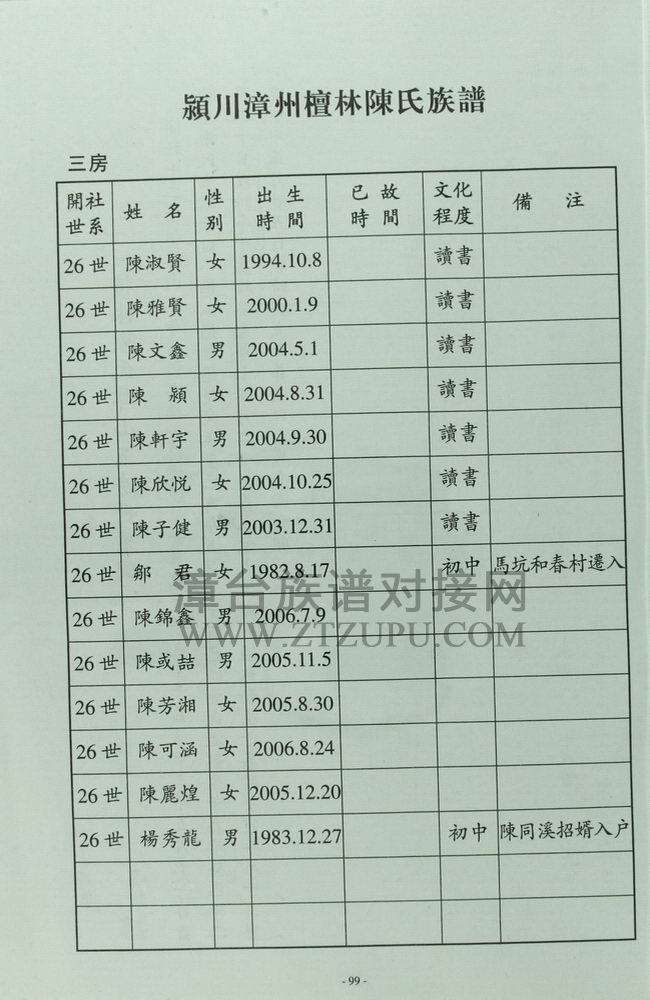 潁川漳州檀林陳氏族譜
三房
開社世系 姓 名 性别 出生時間 已故時間 文化程度 備 注
26世 陳淑賢 女 1994.10.8 讀書
26世 陳雅賢 女 2000.1.9 讀書
26世 陳文鑫 男 2004.5.1 讀書
26世 陳 潁 女 2004.8.31 讀書
26世 陳軒宇 男 2004.9.30 讀書
26世 陳欣悦 女 2004.10.25 讀書
26世 陳子健 男 2003.12.31 讀書
26世 鄒 君 女 1982.8.17 初中 馬坑和春村遷入
26世 陳錦鑫 男 2006.7.9
26世 陳或喆 男 2005.11.5
26世 陳芳湘 女 2005.8.30
26世 陳可涵 女 2006.8.24
26世 陳麗煌 女 2005.12.20
26世 楊秀龍 男 1983.12.27 初中 陳同溪招婿入户
漳台族谱对接网
WWW.ZTZUPU.COM
- 99 -